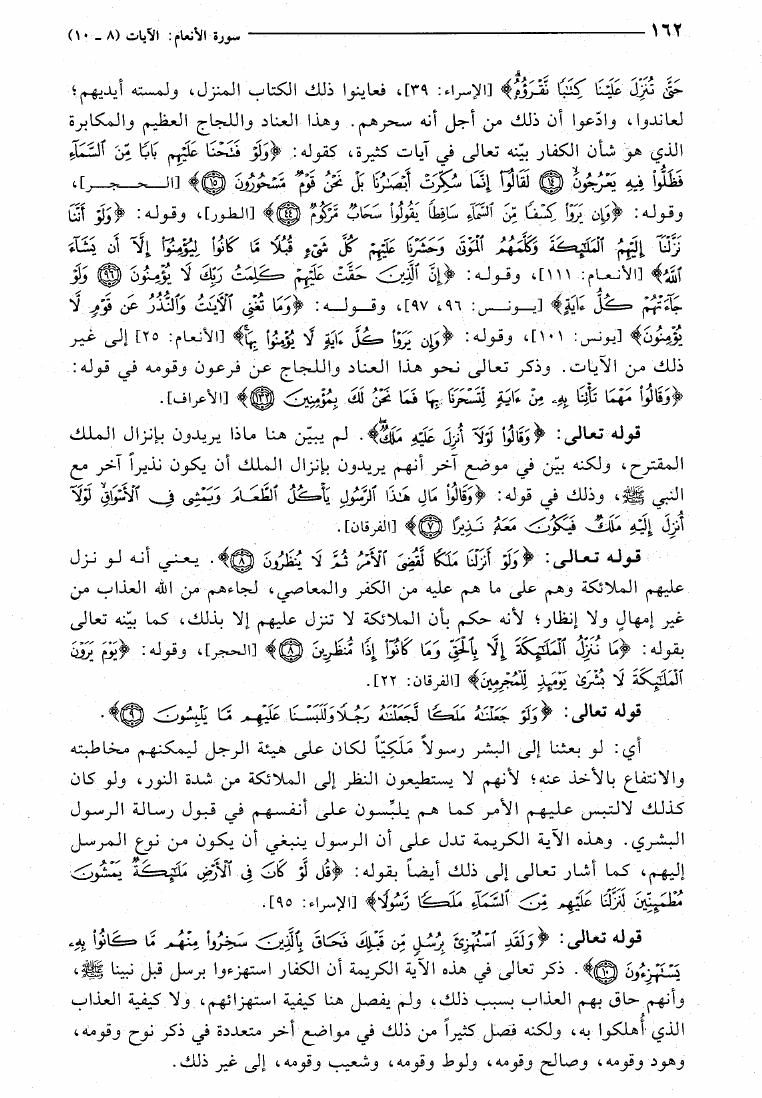 ١٦٢ سورة الأنعام: الآيات (٨ - ١٠)
حَتَّى تُنَزِّلَ عَلَيْنَا كِتَٰبًا نَّقْرَؤُهُۥ﴾ [الإسراء: ٣٩]، فعاينوا ذلك الكتاب المنزل، ولمسته أيديهم؛
لعاندوا، وادّعوا أن ذلك من أجل أنه سحرهم. وهذا العناد واللجاج العظيم والمكابرة
الذي هو شأن الكفار بيّنه تعالى في آيات كثيرة، كقوله: ﴿وَلَوْ فَتَحْنَا عَلَيْهِم بَابًا مِّنَ ٱلسَّمَآءِ
فَظَلُّوا۟ فِيهِ يَعْرُجُونَ ﴿١٤﴾ لَقَالُوٓا۟ إِنَّمَا سُكِّرَتْ أَبْصَٰرُنَا بَلْ نَحْنُ قَوْمٌ مَّسْحُورُونَ ﴿١٥﴾﴾ [الـحـجـر]،
وقوله: ﴿وَإِن يَرَوْا۟ كِسْفًا مِّنَ ٱلسَّمَآءِ سَاقِطًا يَقُولُوا۟ سَحَابٌ مَّرْكُومٌ ﴿٤٤﴾﴾ [الطور]، وقوله: ﴿وَلَوْ أَنَّنَا
نَزَّلْنَآ إِلَيْهِمُ ٱلْمَلَٰٓئِكَةَ وَكَلَّمَهُمُ ٱلْمَوْتَىٰ وَحَشَرْنَا عَلَيْهِمْ كُلَّ شَىْءٍ قُبُلًا مَّا كَانُوا۟ لِيُؤْمِنُوٓا۟ إِلَّآ أَن يَشَآءَ
ٱللَّهُ﴾ [الأنعام: ١١١]، وقوله: ﴿إِنَّ ٱلَّذِينَ حَقَّتْ عَلَيْهِمْ كَلِمَتُ رَبِّكَ لَا يُؤْمِنُونَ ﴿٩٦﴾ وَلَوْ
جَآءَتْهُمْ كُلُّ ءَايَةٍ﴾ [يـونـس: ٩٦، ٩٧]، وقـولـه: ﴿وَمَا تُغْنِى ٱلْءَايَٰتُ وَٱلنُّذُرُ عَن قَوْمٍ لَّا
يُؤْمِنُونَ﴾ [يونس: ١٠١]، وقوله: ﴿وَإِن يَرَوْا۟ كُلَّ ءَايَةٍ لَّا يُؤْمِنُوا۟ بِهَا﴾ [الأنعام: ٢٥] إلى غير
ذلك من الآيات. وذكر تعالى نحو هذا العناد واللجاج عن فرعون وقومه في قوله:
﴿وَقَالُوا۟ مَهْمَا تَأْتِنَا بِهِۦ مِنْ ءَايَةٍ لِّتَسْحَرَنَا بِهَا فَمَا نَحْنُ لَكَ بِمُؤْمِنِينَ ﴿١٣٢﴾﴾ [الأعراف].
قوله تعالى: ﴿وَقَالُوا۟ لَوْلَآ أُنزِلَ عَلَيْهِ مَلَكٌ﴾. لم يبيّن هنا ماذا يريدون بإنزال الملك
المقترح، ولكنه بيّن في موضع آخر أنهم يريدون بإنزال الملك أن يكون نذيراً آخر مع
النبي ﷺ، وذلك في قوله: ﴿وَقَالُوا۟ مَالِ هَٰذَا ٱلرَّسُولِ يَأْكُلُ ٱلطَّعَامَ وَيَمْشِى فِى ٱلْأَسْوَاقِ لَوْلَآ
أُنزِلَ إِلَيْهِ مَلَكٌ فَيَكُونَ مَعَهُۥ نَذِيرًا ﴿٧﴾﴾ [الفرقان].
قوله تعالى: ﴿وَلَوْ أَنزَلْنَا مَلَكًا لَّقُضِىَ ٱلْأَمْرُ ثُمَّ لَا يُنظَرُونَ ﴿٨﴾﴾. يعني أنه لو نزل
عليهم الملائكة وهم على ما هم عليه من الكفر والمعاصي، لجاءهم من الله العذاب من
غير إمهال ولا إنظار؛ لأنه حكم بأن الملائكة لا تنزل عليهم إلا بذلك، كما بيّنه تعالى
بقوله: ﴿مَا نُنَزِّلُ ٱلْمَلَٰٓئِكَةَ إِلَّا بِٱلْحَقِّ وَمَا كَانُوٓا۟ إِذًا مُّنظَرِينَ ﴿٨﴾﴾ [الحجر]، وقوله: ﴿يَوْمَ يَرَوْنَ
ٱلْمَلَٰٓئِكَةَ لَا بُشْرَىٰ يَوْمَئِذٍ لِّلْمُجْرِمِينَ﴾ [الفرقان: ٢٢].
قوله تعالى: ﴿وَلَوْ جَعَلْنَٰهُ مَلَكًا لَّجَعَلْنَٰهُ رَجُلًا وَلَلَبَسْنَا عَلَيْهِم مَّا يَلْبِسُونَ ﴿٩﴾﴾.
أي: لو بعثنا إلى البشر رسولاً مَلَكِيّاً لكان على هيئة الرجل ليمكنهم مخاطبته
والانتفاع بالأخذ عنه؛ لأنهم لا يستطيعون النظر إلى الملائكة من شدة النور، ولو كان
كذلك لالتبس عليهم الأمر كما هم يلبِّسون على أنفسهم في قبول رسالة الرسول
البشري. وهذه الآية الكريمة تدل على أن الرسول ينبغي أن يكون من نوع المرسل
إليهم، كما أشار تعالى إلى ذلك أيضاً بقوله: ﴿قُل لَّوْ كَانَ فِى ٱلْأَرْضِ مَلَٰٓئِكَةٌ يَمْشُونَ
مُطْمَئِنِّينَ لَنَزَّلْنَا عَلَيْهِم مِّنَ ٱلسَّمَآءِ مَلَكًا رَّسُولًا﴾ [الإسراء: ٩٥].
قوله تعالى: ﴿وَلَقَدِ ٱسْتُهْزِئَ بِرُسُلٍ مِّن قَبْلِكَ فَحَاقَ بِٱلَّذِينَ سَخِرُوا۟ مِنْهُم مَّا كَانُوا۟ بِهِۦ
يَسْتَهْزِءُونَ ﴿١٠﴾﴾. ذكر تعالى في هذه الآية الكريمة أن الكفار استهزءوا برسل قبل نبينا ﷺ،
وأنهم حاق بهم العذاب بسبب ذلك، ولم يفصل هنا كيفية استهزائهم، ولا كيفية العذاب
الذي أُهلكوا به، ولكنه فصل كثيراً من ذلك في مواضع أخر متعددة في ذكر نوح وقومه،
وهود وقومه، وصالح وقومه، ولوط وقومه، وشعيب وقومه، إلى غير ذلك.